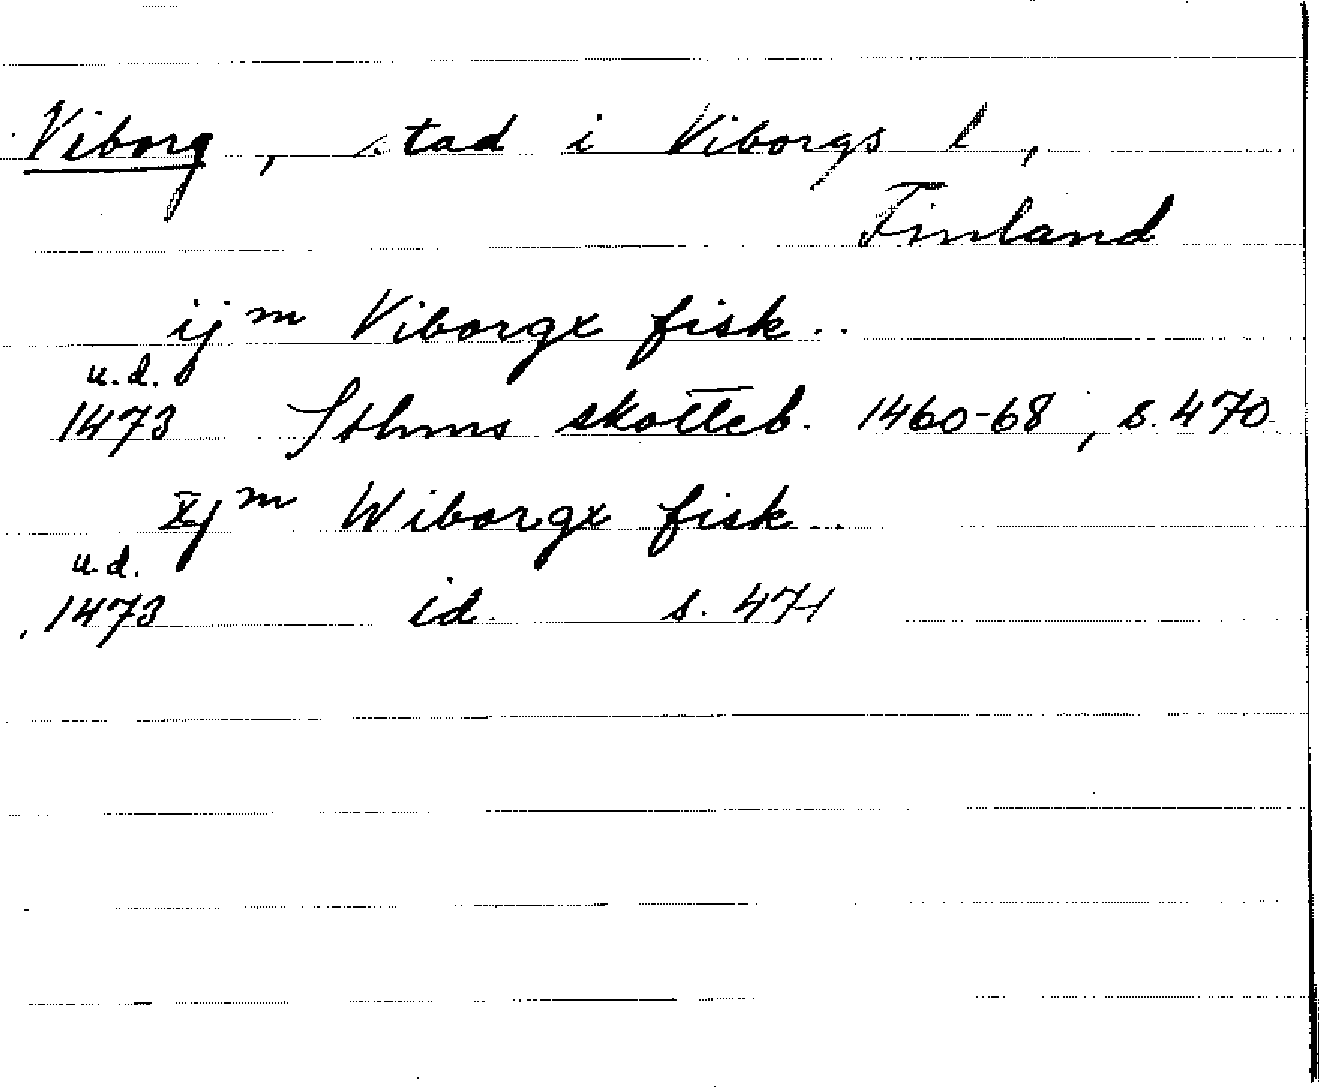 Viborg, stad i Viborgs l,
Finland
ij m Viborgx fisk..
u.d.
1473 Sthms skotteb. 1460-68, s. 470
xj m Wiborgx fisk..
u.d.
1473 id. s. 471